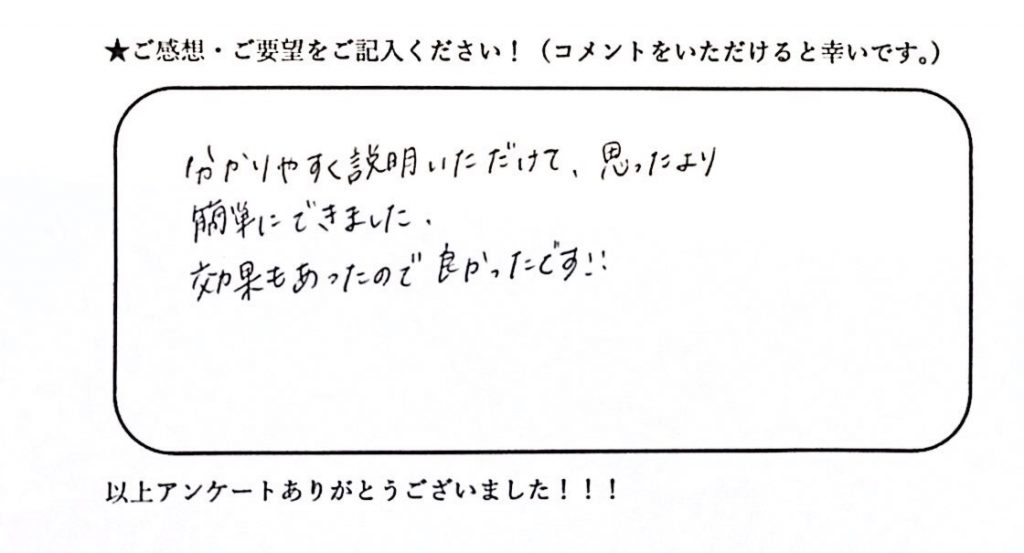 ★ご感想・ご要望をご記入ください！（コメントをいただけると幸いです。）
分かりやすく説明いただけて、思ったより
簡単にできました．
効果もあったので良かったです!!
以上アンケートありがとうございました！！！